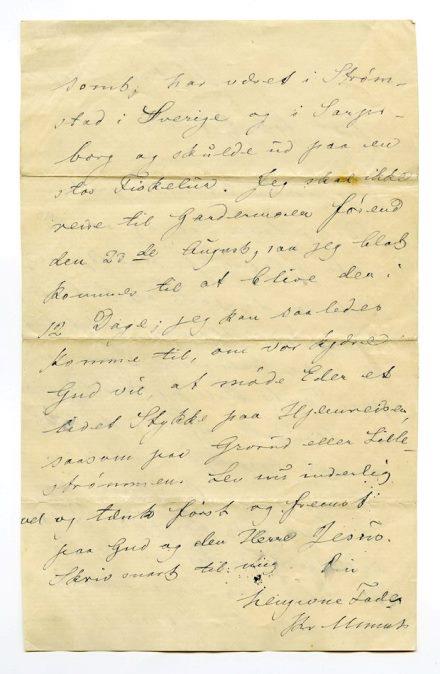 somt, har været i Strøm-
stad i Sverige og i Sarps-
borg og skulde ud paa en
stor Fisketur. Jeg skal ikke
reise til Gardermoen førend
den 23de August, saa jeg blot
kommer til at blive der i
12 Dage; jeg kan saaledes
komme til, om vor kjære
Gud vil, at møde Eder et
lidet Stykke paa Hjemreisen,
saasom paa Grorud eller Lille-
strømmen. Lev nu inderlig
vel og tænk først og fremst
paa Gud og den Herre Jesus.
Skriv snart til mig. Din
hengivne Fader